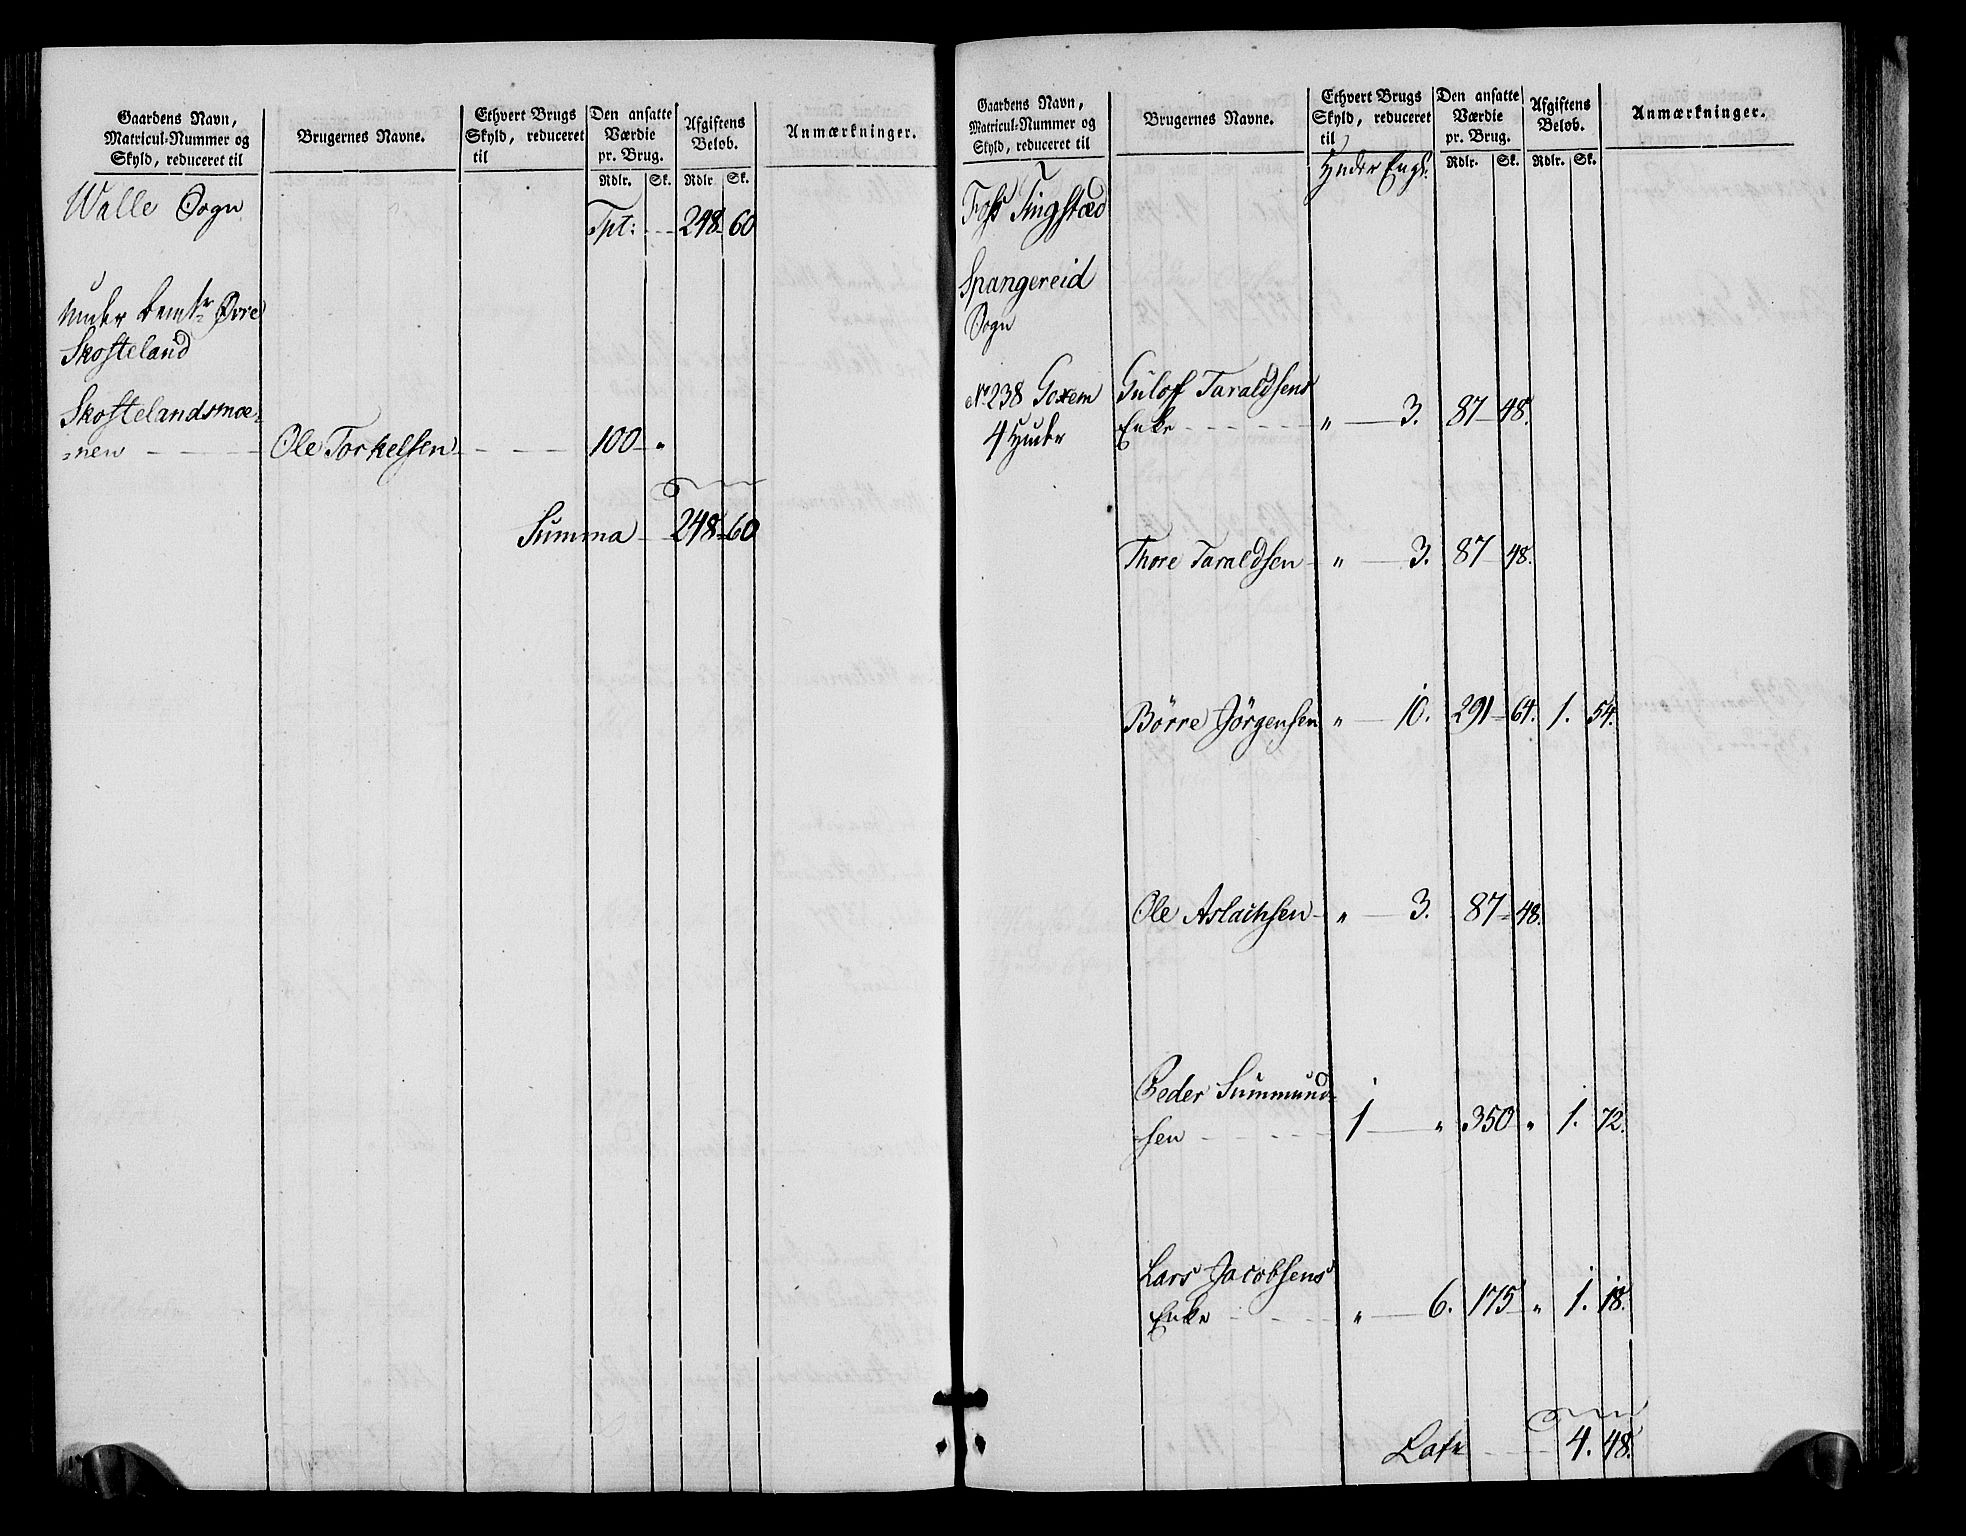 Gaardens Navn,
Matricul-Nummer og
Skyld, reduceret til
Brugernes Navne.
Ethvert Brugs
Skyld, reduceret
til
Den ansatte
Værdie
pr. Brug.
Rdlr. Sk.
Afgiftens
Beløb.
Rdlr Sk.
Anmærkninger.
Walle Sogn
Tpt: 248 60
under bemte Øvre
Skofteland
Skoftelandsmoe-
-nen Ole Torkelsen 100 "
Summa 248 60
Gaardens Navn,
Matricul-Nummer og
Skyld, reduceret til
Brugernes Navne.
Ethvert Brugs
Skyld, reduceret
til
Huder Engl.
Den ansatte
Værdie
pr. Brug.
Rdlr. Sk.
Afgiftens
Beløb.
Rdlr. Sk.
Anmærkninger.
Foss Tingstæd
Spangereid
Sogn
No 238 Goxem Gulof Taraldsens
4 Huder Enke " 3. 87 48.
Thore Taraldsen " 3. 87 48.
Børre Jørgensen " 10. 291 64. 1. 54.
Ole Aslachsen " 3. 87 48.
Peder Summund-
-sen 1 " 350 " 1. 72.
Lars Jacobsens
Enke " 6. 175 " 1. 18.
Late 4. 48.